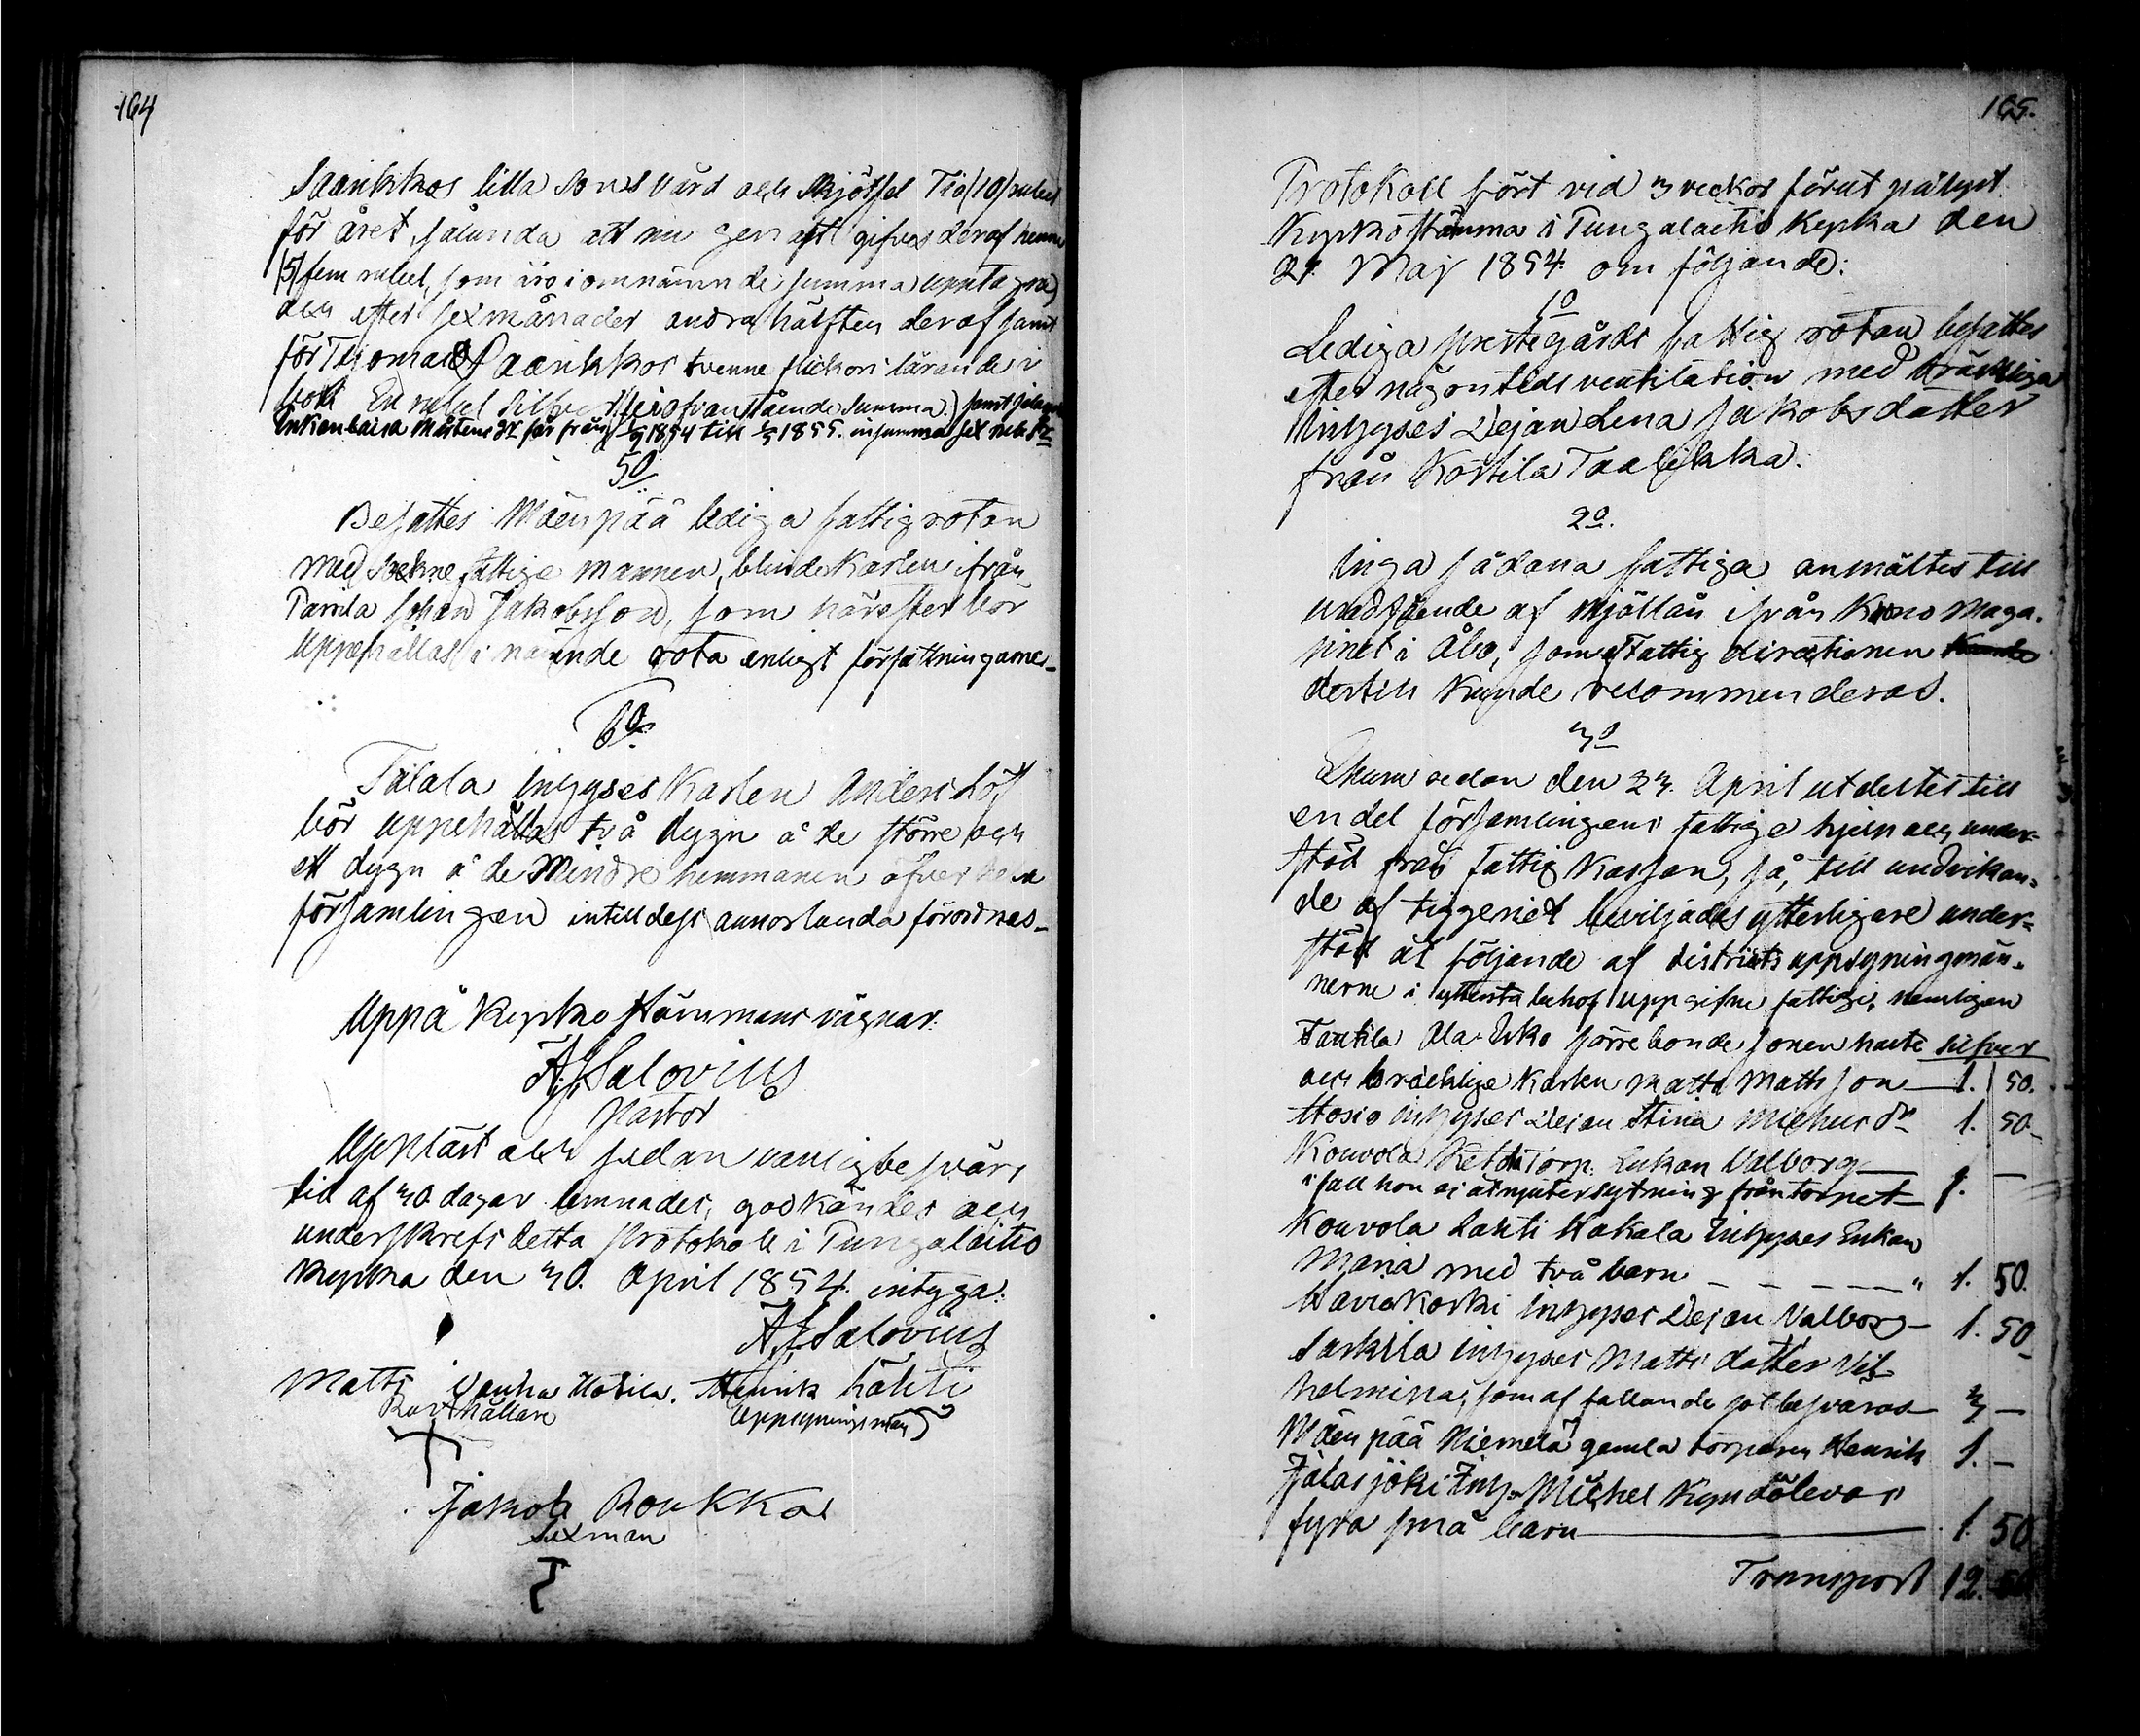 164
Saarikkos lilla sons vård och skjötsel Tio (10) rubel
för året, sålunda att nu genast gifves deraf henne
(5) fem rubel, som äro i omnämnde summa upptagne
och efter sex månader andra hälften deraf samt
för Saarikkos tvenne flickors lärande i
bok En rubel silfver
Enkan Caisa Mårtens dr får från 1854 till 1855. in summa sex rub. Sr
5o
Besattes Mäenpää lediga fattigrotan
med sokne fattige mannen, blinde Karlen ifrån
Panila Johan Jakobsson, som härefter bör
uppehållas i nämnde rota enligt författningarne.
6o
Talala Inhyses Karlen Anders Löf
bör uppehållas två dygn å de större och
ett dygn å de Mindre hemmanen öfver hela
församlingen intilldess annorlunda förordnas.
Uppå Kyrko stämmans vägnar:
A.J. Salovius
Pastor
Uppläst och sedan vanlig besvärs
tid af 30 dagar lemnades, godkändes och
underskrefs detta Protokoll i Pungalaitio
Kyrka den 30. April 1854. intyga:
A.J. Salovius
Matts Vanha Hotila. Henrik Lähti
Rusthållare Uppsyningsman
Jakob Roukka
Sexman
165.
Protokoll fört vid 3 veckor förut pålyst
Kyrkostämma i Pungalaitio Kyrka den
21. Maj 1854. om följande:
1o
Lediga prestegårds fattig rotan besattes
efter någon tids ventilation med bräckliga
Inhyses Pejan Lena Jakobsdotter
från Kostila Taalikka.
2o.
Inga sådana fattiga anmältes till
undfående af mjöl lån ifrån Krono Maga-
sinet i Åbo, som af Fattig directionen
dertill kunde recommenderas.
3o
Ehuru sedan den 23. April utdeltes till
en del församlingens fattige hjelp och under-
stöd från Fattig Kassan, så, till undvikan-
de af tiggeriet beviljades ytterligare under-
stöd åt följande af districts uppsyningsmän-
nerne i yttersta behof uppgifne fattige, nemligen
Tantila Ala-Erko förre bonde sonen halte silfver
och bräcklige Karlen Matts Mattsson 1. 50.
Hosio Inhyses Pejan Stina Michels dr 1. 50.
Kouvola Torp: Enkan Valborg
i fall hon ej åtnjuter sytning från torpet 1. —
Kouvola Lahti Hakala Inhyses Enkan
Maria med två barn „ 1. 50.
Haviokoski Inhyses Pejan Valborg 1. 50
Sarkila inhyses Matts dotter Vil-
helmina, som af fallande sot besväras 3 —
Mäenpää Niemelä gamla torparen Henrik 1. —
Jalasjöki Inh. Michel
fyra små barn 1. 50
Transport 12. 50